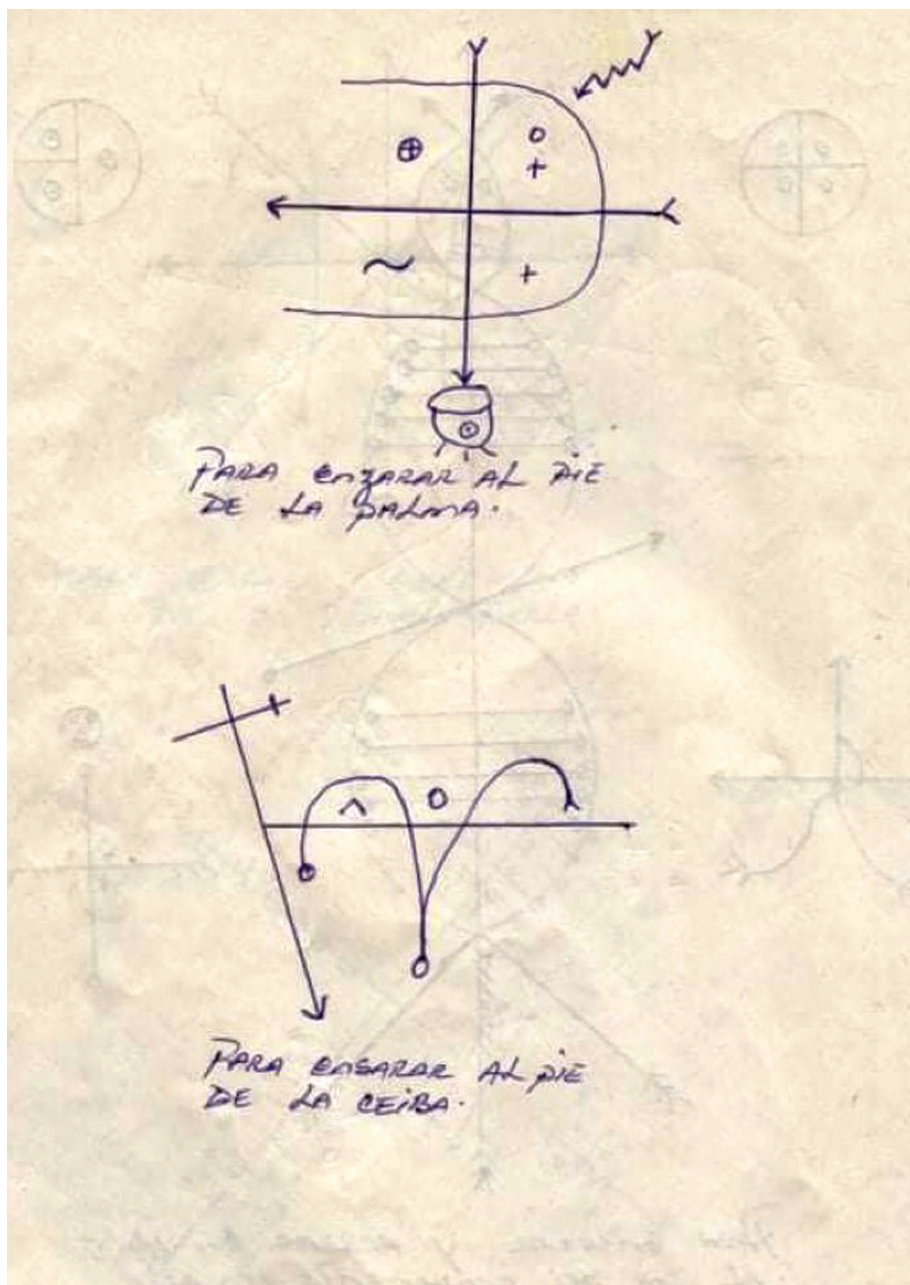 PARA ENZARAR AL PIE
DE LA PALMA.
PARA ENSARAR AL PIE
DE LA CEIBA.